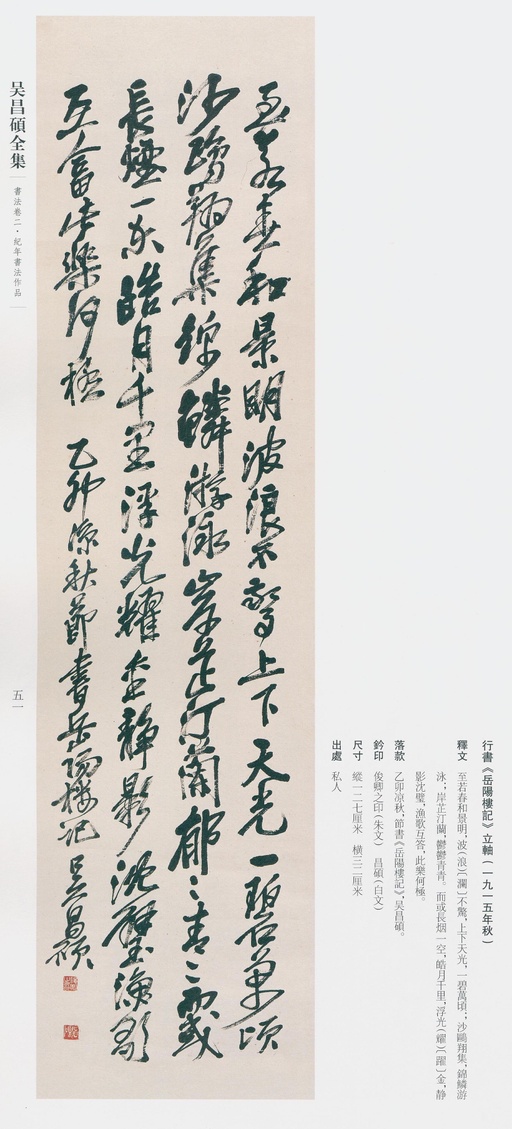 行書《岳陽樓記》立軸（一九一五年秋）
釋文　至若春和景明，波（浪）〔瀾〕不驚，上下天光，一碧萬頃；沙鷗翔集，錦鱗游
泳；岸芷汀蘭，鬱鬱青青。而或長烟一空，皓月千里，浮光（耀）〔躍〕金，静
影沈璧，漁歌互答，此樂何極。
落款　乙卯凉秋，節書《岳陽樓記》，吴昌碩。
鈐印　俊卿之印（朱文）　昌碩（白文）
尺寸　縱一二七厘米　橫三二厘米
出處　私人
至若春和景明波浪不驚上下天光一碧萬頃
沙鷗翔集錦鱗游泳岸芷汀蘭郁〻青〻而或
長煙一空皓月千里浮光耀金靜影沈璧漁歌
互答此樂何極　乙卯涼秋節書岳陽樓記吳昌碩
吴昌碩全集
書法卷二·紀年書法作品
五一